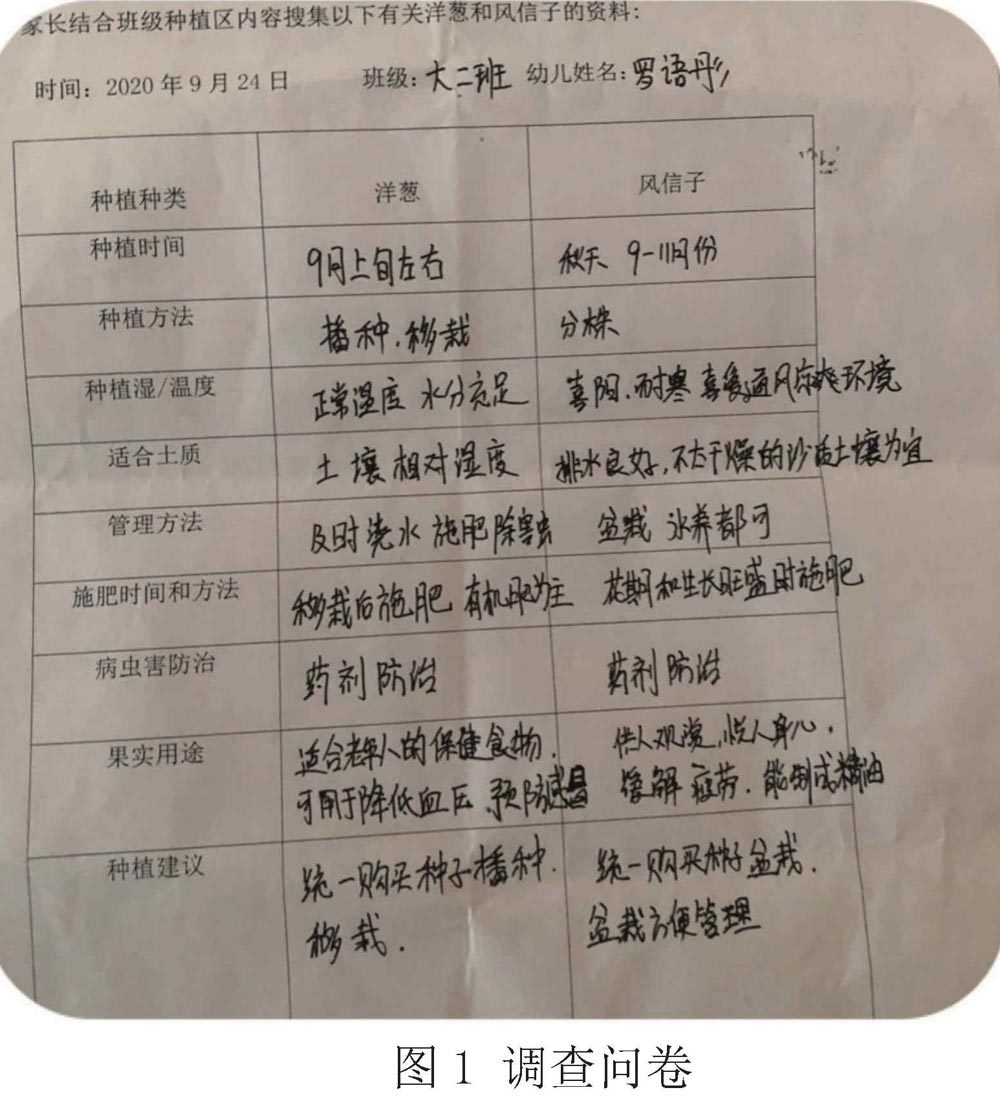 家长结合班级种植区内容搜集以下有关洋葱和风信子的资料:
时间: 2020 年 9 月 24 日 班级: 大二班 幼儿姓名: 罗语彤
种植种类 洋葱 风信子
种植时间 9月上旬左右 秋天 9-11月份
种植方法 播种.移栽 分株
种植湿/温度 正常温度 水分充足 喜阳.耐寒 喜暖通风凉爽环境
适合土质 土壤相对湿度 排水良好,不太干燥的沙质土壤为宜
管理方法 及时浇水 施肥除害虫 盆栽 水养都可
施肥时间和方法 移栽后施肥 有机肥为主 花期和生长旺盛时施肥
病虫害防治 药剂防治 药剂防治
果实用途 适合老年人的保健食物. 供人观赏,悦人身心,
可用于降低血压.预防感冒 缓解疲劳.能制成精油
种植建议 统一购买种子播种. 统一购买种子盆栽.
移栽. 盆栽方便管理
图 1 调查问卷